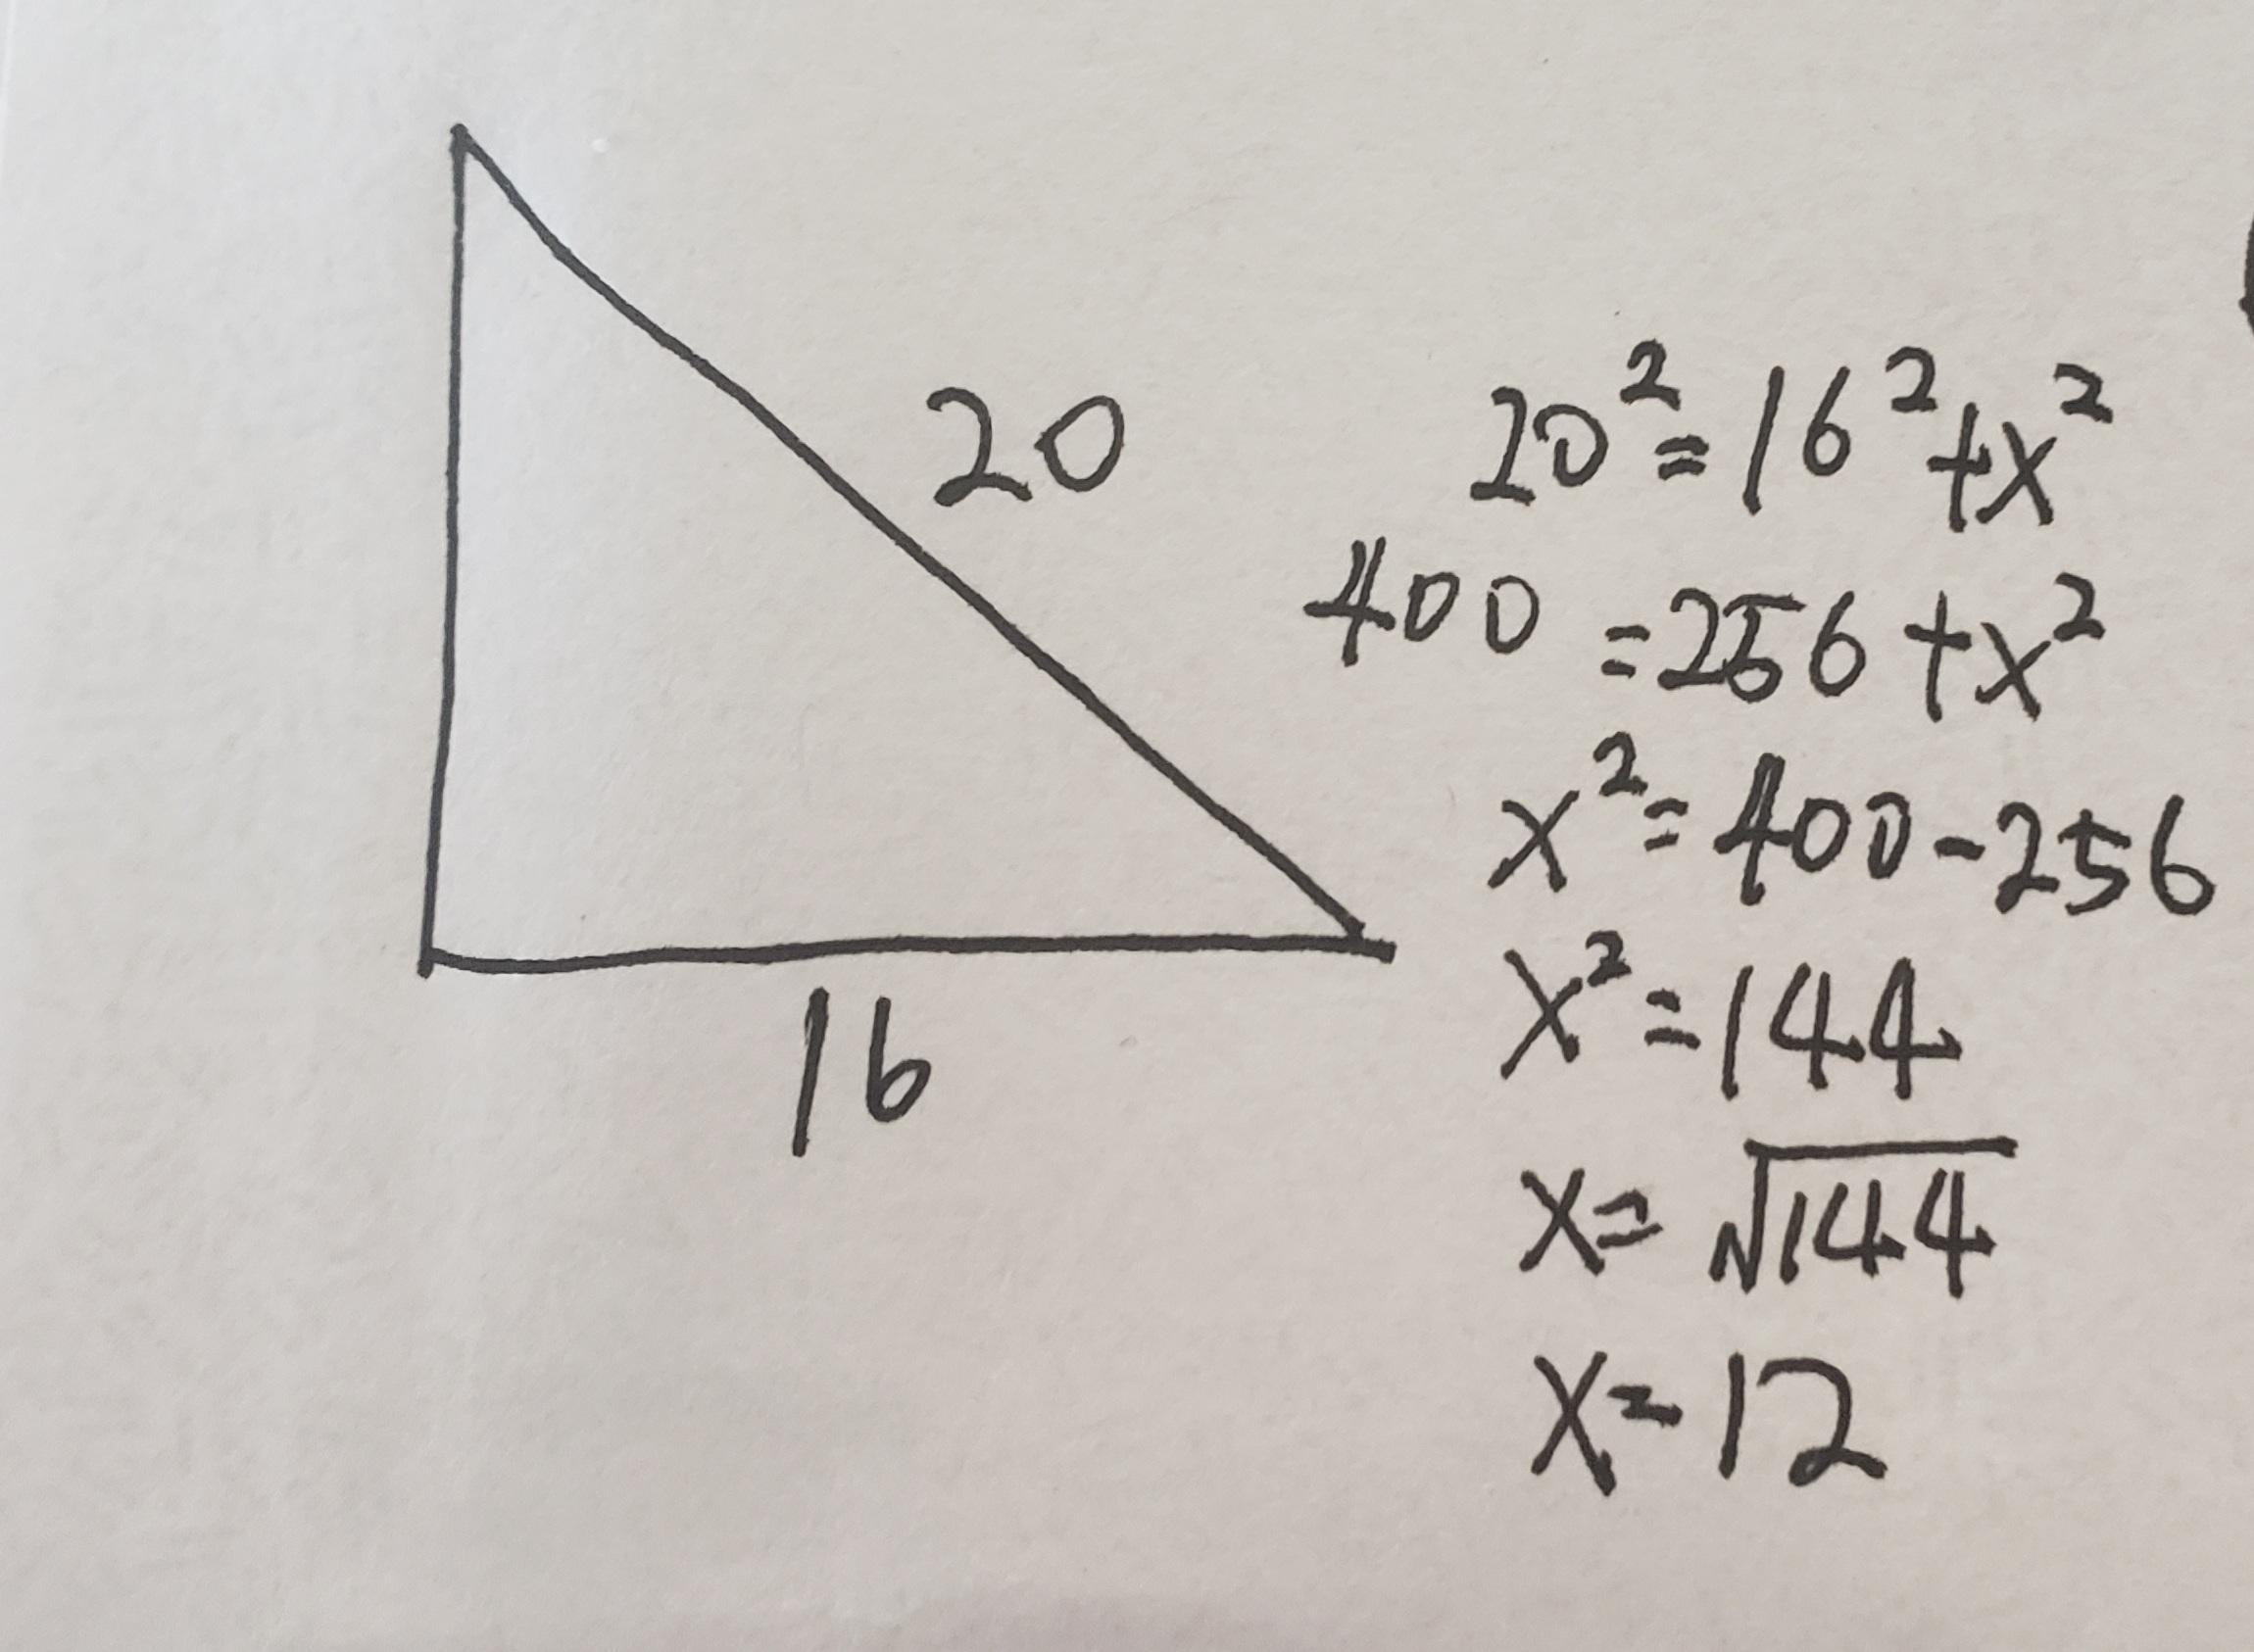 20
16
20²=16²+x²
400=256+x²
x²=400-256
x²=144
x=√144
x=12